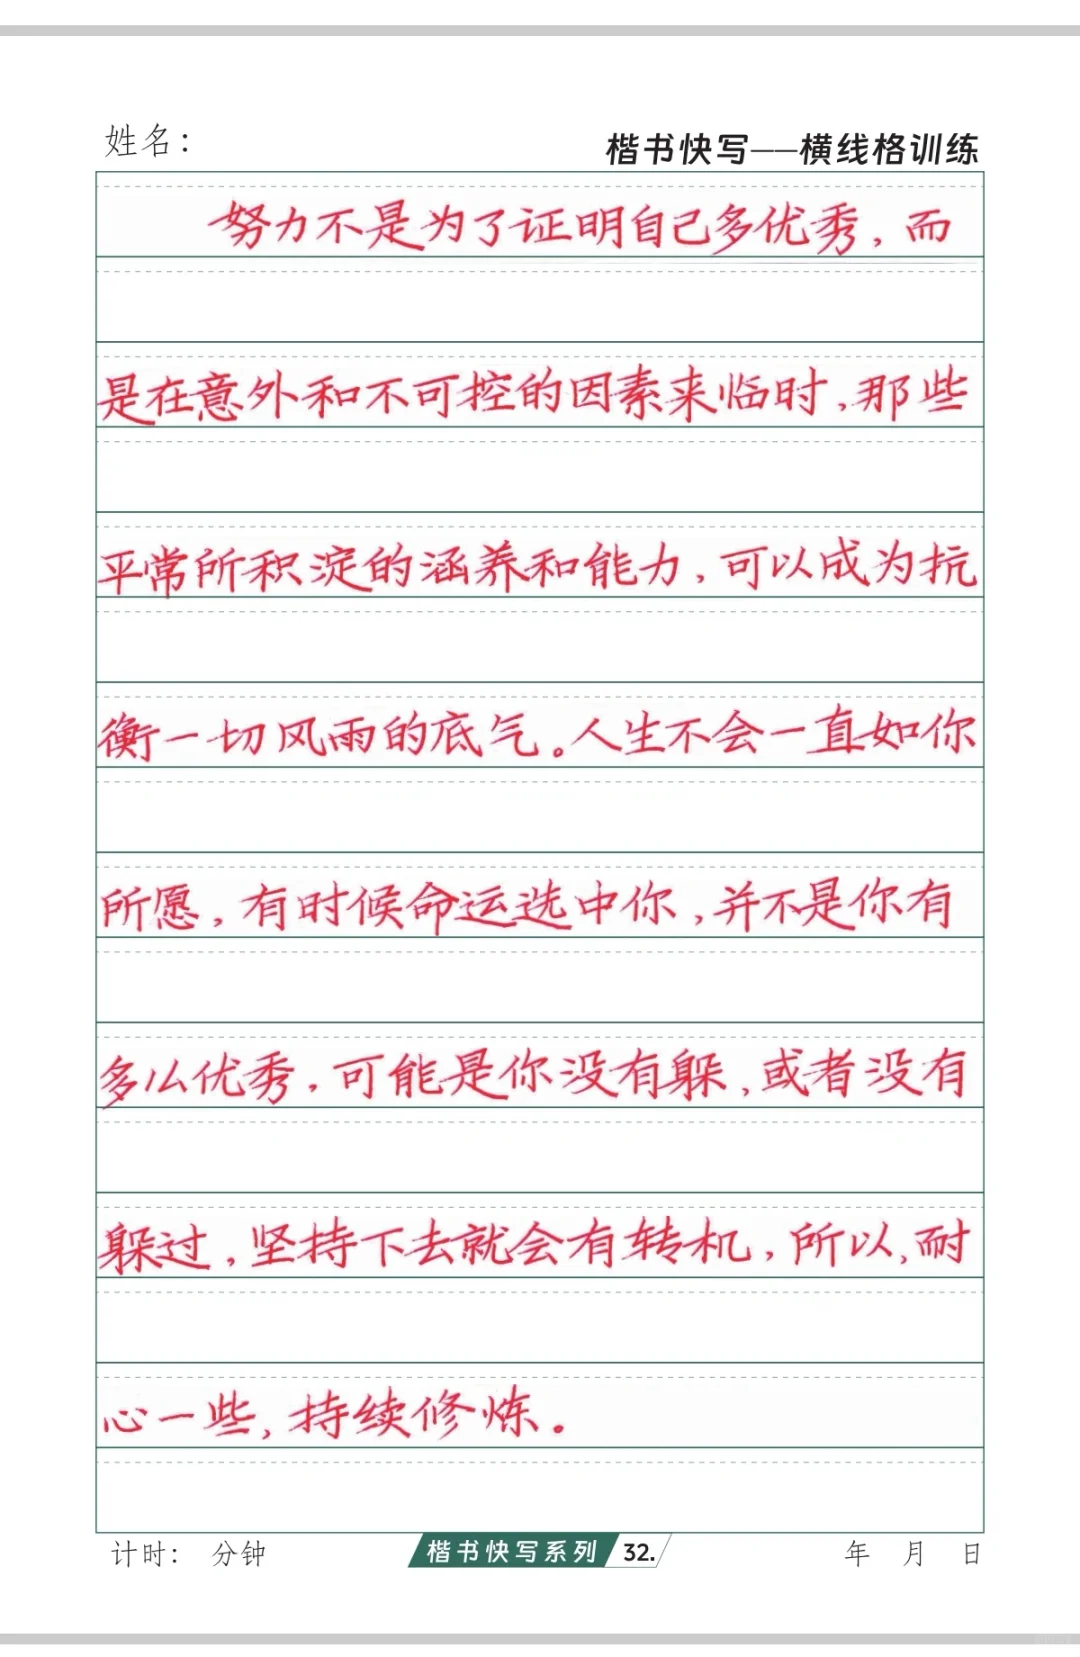 姓名：
楷书快写——横线格训练
努力不是为了证明自己多优秀，而
是在意外和不可控的因素来临时，那些
平常所积淀的涵养和能力，可以成为抗
衡一切风雨的底气。人生不会一直如你
所愿，有时候命运选中你，并不是你有
多么优秀，可能是你没有躲，或者没有
躲过，坚持下去就会有转机，所以，耐
心一些，持续修炼。
计时： 分钟
楷书快写系列 32.
年 月 日